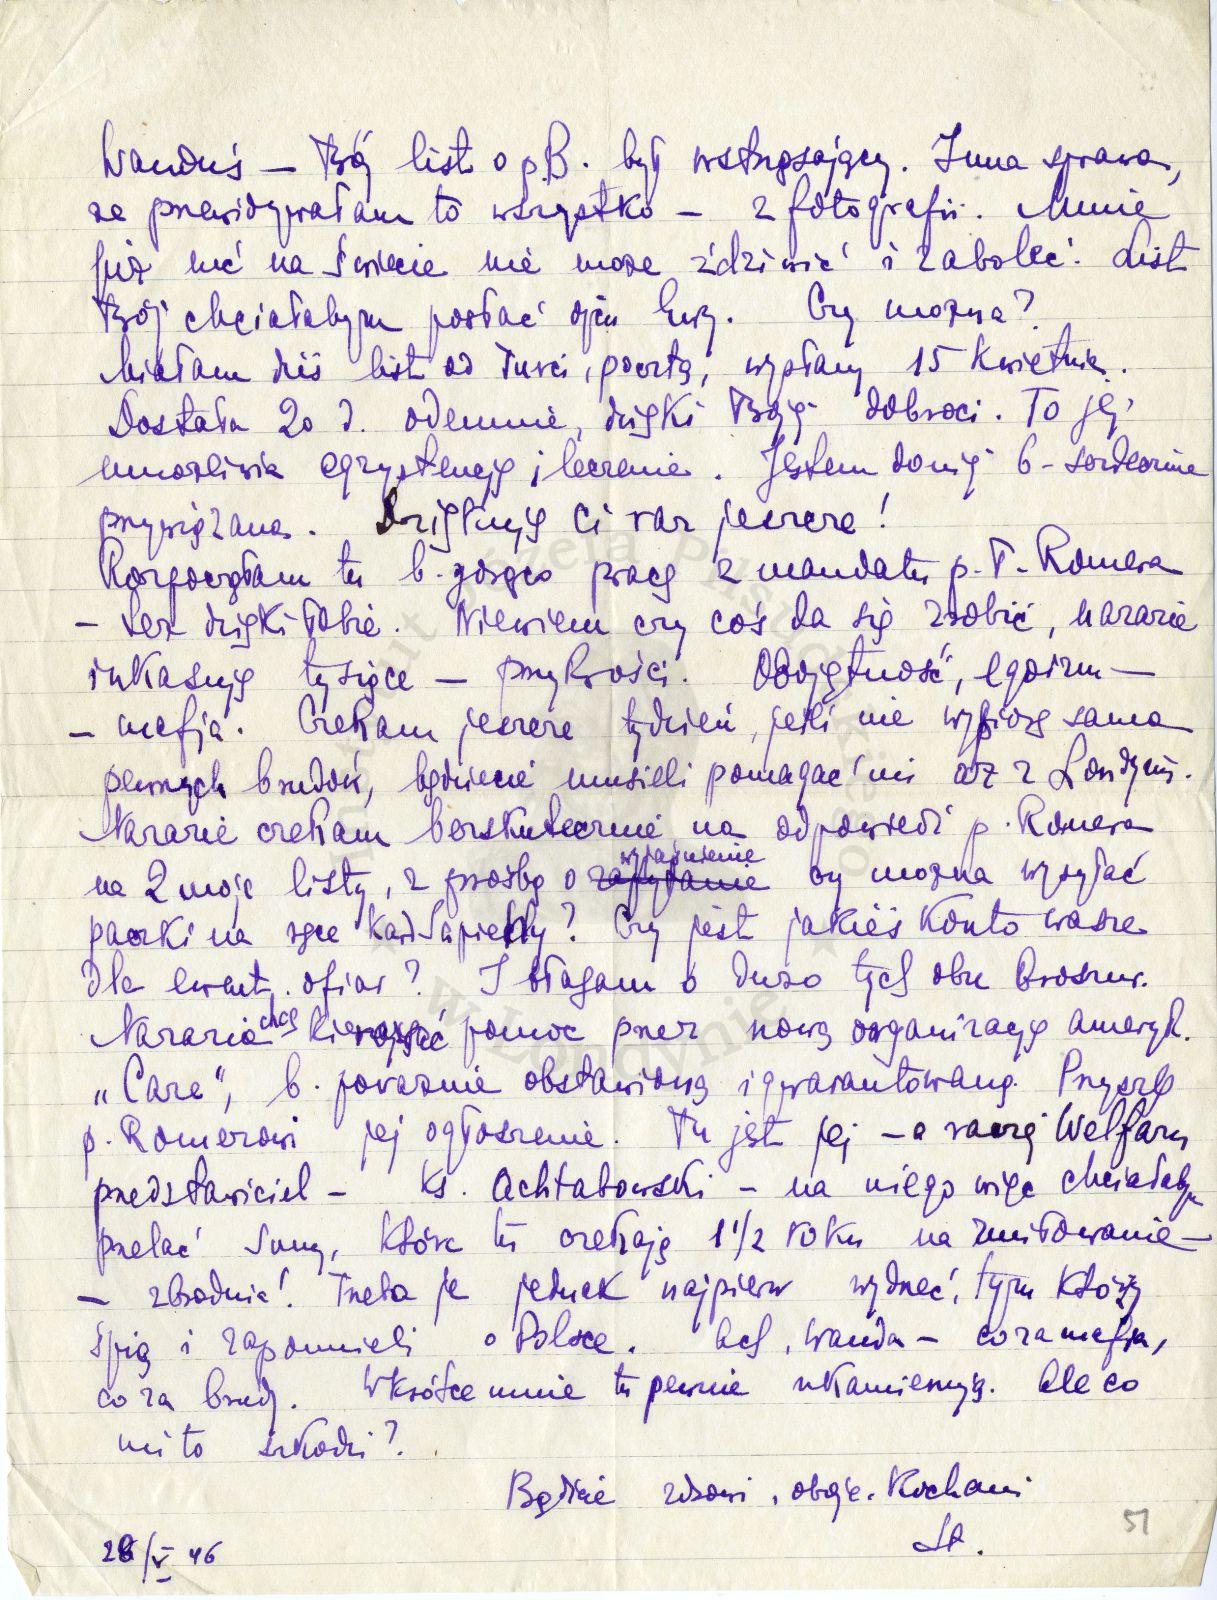 Wanduś – Twój list o p. B. był wstrząsający. Inna sprawa,
że przewidywałam to wszystko – z fotografii. Mnie
już nić na świecie nie może zdziwić i zaboleć. List
Twój chciałabym posłać ojcu Ewy. Czy można?
Miałam dziś list od Tusci, pocztą, wysłany 15 kwietnia.
Dostała 20 d. odemnie, dzięki Twojej dobroci. To jej
umożliwia egzystencję i leczenie. Jestem do niej b. serdecznie
przywiązana. Dziękuję Ci raz jeszcze!
Rozpoczęłam tu b. gorąco pracę z mandatu p. T. Romera
– też dzięki Tobie. Niewiem czy coś da się zrobić, narazie
inkasuję tysiące – przykrości. Obojętność, egoizm –
– mafja. Czekam jeszcze tydzień, jeśli nie wypiorę sama
pewnych brudów, będziecie musieli pomagać mi aż z Londynu.
Narazie czekam bezskutecznie na odpowiedź p. Romera
na 2 moje listy, z prośbą o zapytanie wyjaśnienie czy można wysyłać
paczki na ręce Kard. Sapiehy? Czy jest jakieś konto wasze
dla ewent. ofiar? I błagam o dużo tych obu broszur.
Narazie chcę kierować pomoc przez nową organizację ameryk.
„Care", b. poważnie obstawioną i gwarantowaną. Przyszlę
p. Romerowi jej ogłoszenie. Tu jest jej – a raczej Welfaru
przedstawiciel – ks. Achtabowski – na niego więc chciałabym
przelać sumy, które tu czekają 1 1/2 roku na zmiłowanie –
– zbrodnia! Trzeba je jednak najpierw wydrzeć, tym którzy
śpią i zapomnieli o Polsce. Ach, Wanda – co za mafja,
co za brud. Wkrótce mnie tu pewnie ukamienują. Ale co
mi to szkodzi?
Bądźcie zdrowi, oboje. Kochani
St.
51
28/V 46
Instytut Józefa Piłsudskiego
w Londynie